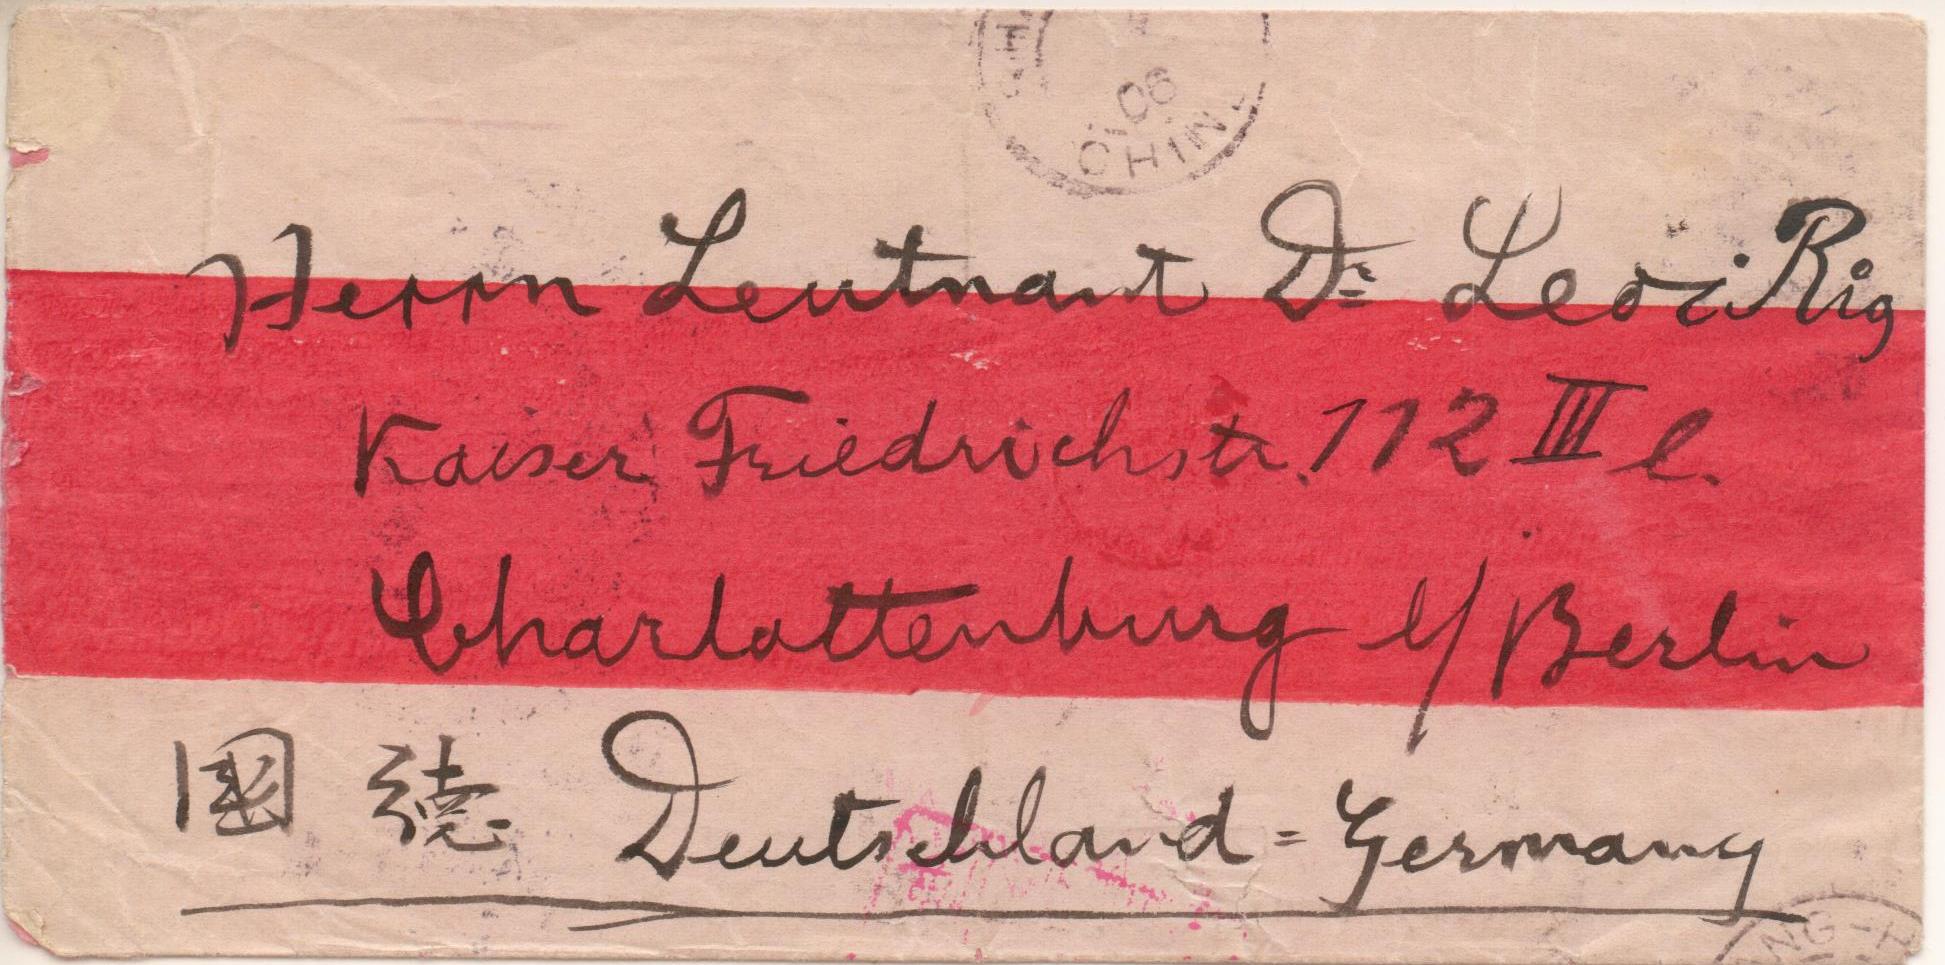 06
CHIN
Herrn Leutnant Dr Levi Rig
Kaiser Friedrichstr. 112 III l.
Charlottenburg b/Berlin
國 德 Deutschland = Germany
NG-H